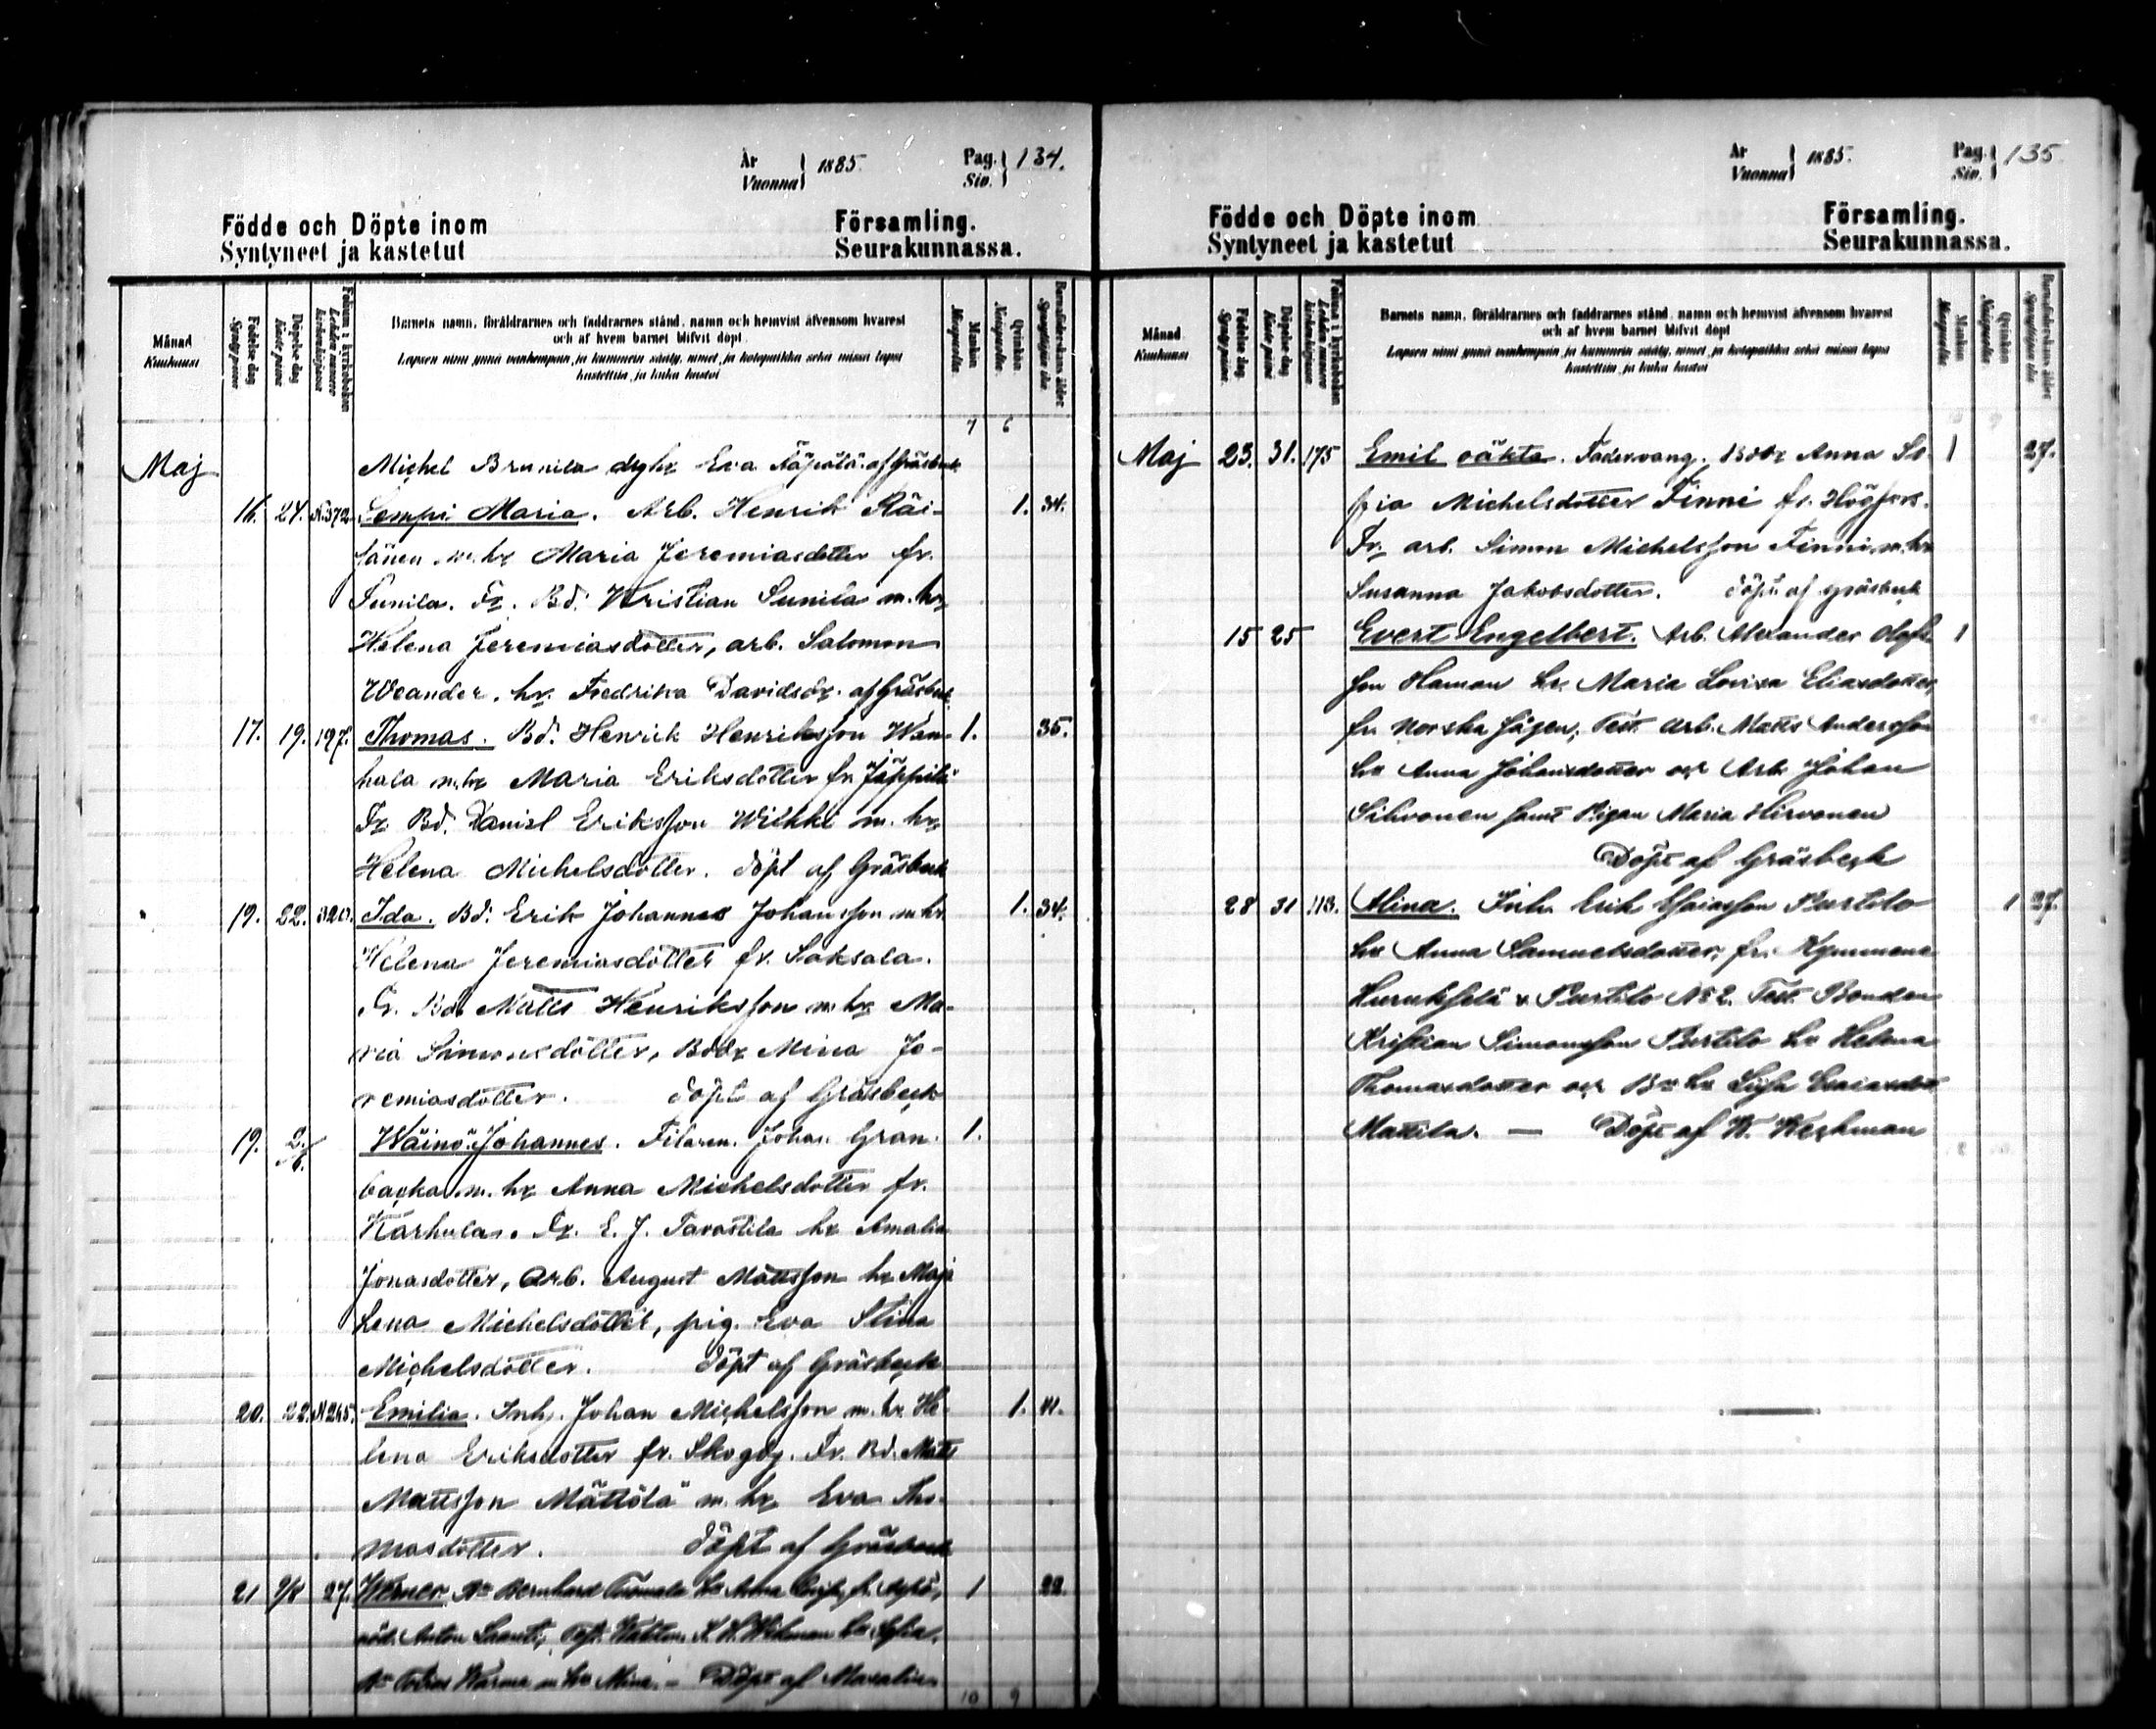 År
Vuonna
1885.
Pag.
Siv.
134.
Födde och Döpte inom
Syntyneet ja kastetut
Församling.
Seurakunnassa.
Månad
Kuukausi
Födelse dag
Döpelse dag
Folium i kyrkoboken
Barnets namn, föräldrarnes och faddrarnes stånd, namn och hemvist äfvensom hvarest
och af hvem barnet blifvit döpt
Lapsen nimi ynnä vanhempain ja kummein sääty, nimet, ja kotopaikka sekä missä lapsi
kastettiin, ja kuka kastoi
Mankön
Miespuolia
Qvinkön
Naispuolia
7 6
Maj Michel Brunila dghr Eva af Gräsbeck
16. 24. N.372 Lempi Maria. Arb. Henrik Räi- 1. 34.
hänen m. hr Maria Jeremiasdotter fr.
Sunila. Fr. Bd. Kristian Sunila m. hr
Helena Jeremiasdotter, arb. Salomon
Weander. hr. Fredrika Davidsdr. af Gräsbeck
17. 19. 197. Thomas. Bd. Henrik Henriksson Wan- 1. 35.
hala m. hr Maria Eriksdotter fr. Jäppilä
Fr Bd. Daniel Eriksson Wilkki m. hr
Helena Michelsdotter. döpt af Gräsbeck
19. 22. 320. Ida. Bd. Erik Johannes Johansson m. hr. 1. 34.
Helena Jeremiasdotter fr. Saksala.
Fr. Bd. Matts Henriksson m. hr Ma-
ria Simonsdotter, Bddr Mina Je-
remiasdotter. döpt af Gräsbeck
19. 2/6. Wäinö Johannes. Filaren. Johan Gran- 1.
backa m. hr Anna Michelsdotter fr.
Karhula. Fr. E. J. Tavastila hr Amalia
Jonasdotter, Arb. August Mattsson hr Maja
Lena Michelsdotter, pig. Eva Stina
Michelsdotter. döpt af Gräsbeck
20. 22. N 245. Emilia. Inh. Johan Michelsson m. hr. He- 1. 41.
lena Eriksdotter fr. Skogby. Fr. Bd. Matts
Mattsson Mättölä m. hr Eva Tho-
masdotter. döpt af Gräsbeck
21 9/8 27. Werner. Bernhard Tuomala hr Anna 1 22.
Anton Test. K. W. Wikman hr Sofia.
Tobias Warma m hr Mina. – Döpt af
10 9
År
Vuonna
1885.
Pag.
Siv.
135
Födde och Döpte inom
Syntyneet ja kastetut
Församling.
Seurakunnassa.
Månad
Kuukausi
Födelse dag
Döpelse dag
Folium i kyrkoboken
Barnets namn, föräldrarnes och faddrarnes stånd, namn och hemvist äfvensom hvarest
och af hvem barnet blifvit döpt
Lapsen nimi ynnä vanhempain ja kummein sääty, nimet, ja kotopaikka sekä missä lapsi
kastettiin, ja kuka kastoi
Mankön
Miespuolia
Qvinkön
Naispuolia
Maj 23. 31. 175 Emil oäkta. Bddr Anna So- 1 27.
fia Michelsdotter Finni fr. Högfors.
Fr. arb. Simon Michelsson Finni m. hr
Susanna Jakobsdotter. döpt af Gräsbeck
15 25 Evert Engelbert. Arb. Alexander Olofs- 1
son Haman hr. Maria Lovisa Eliasdotter,
fr. Norska sågen; Test. Arb. Matts Andersson
hr Anna Johansdotter och Arb. Johan
Silvonen samt Pigan Maria Hirvonen
Döpt af Gräsbeck
28 31 113. Alina. Inh. Erik Esaiasson Pertilo 1 27.
hr Anna Samuelsdotter, fr. Kymmene
Huruksela & Pertilo No 2. Test. Bonden
Kristian Simonsson Pertilo hr Helena
Thomasdotter och
Mattila. – Döpt af K. Weckman